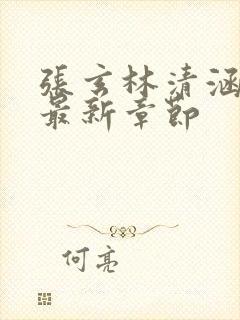 張玄林清涵
最新章節
何亮